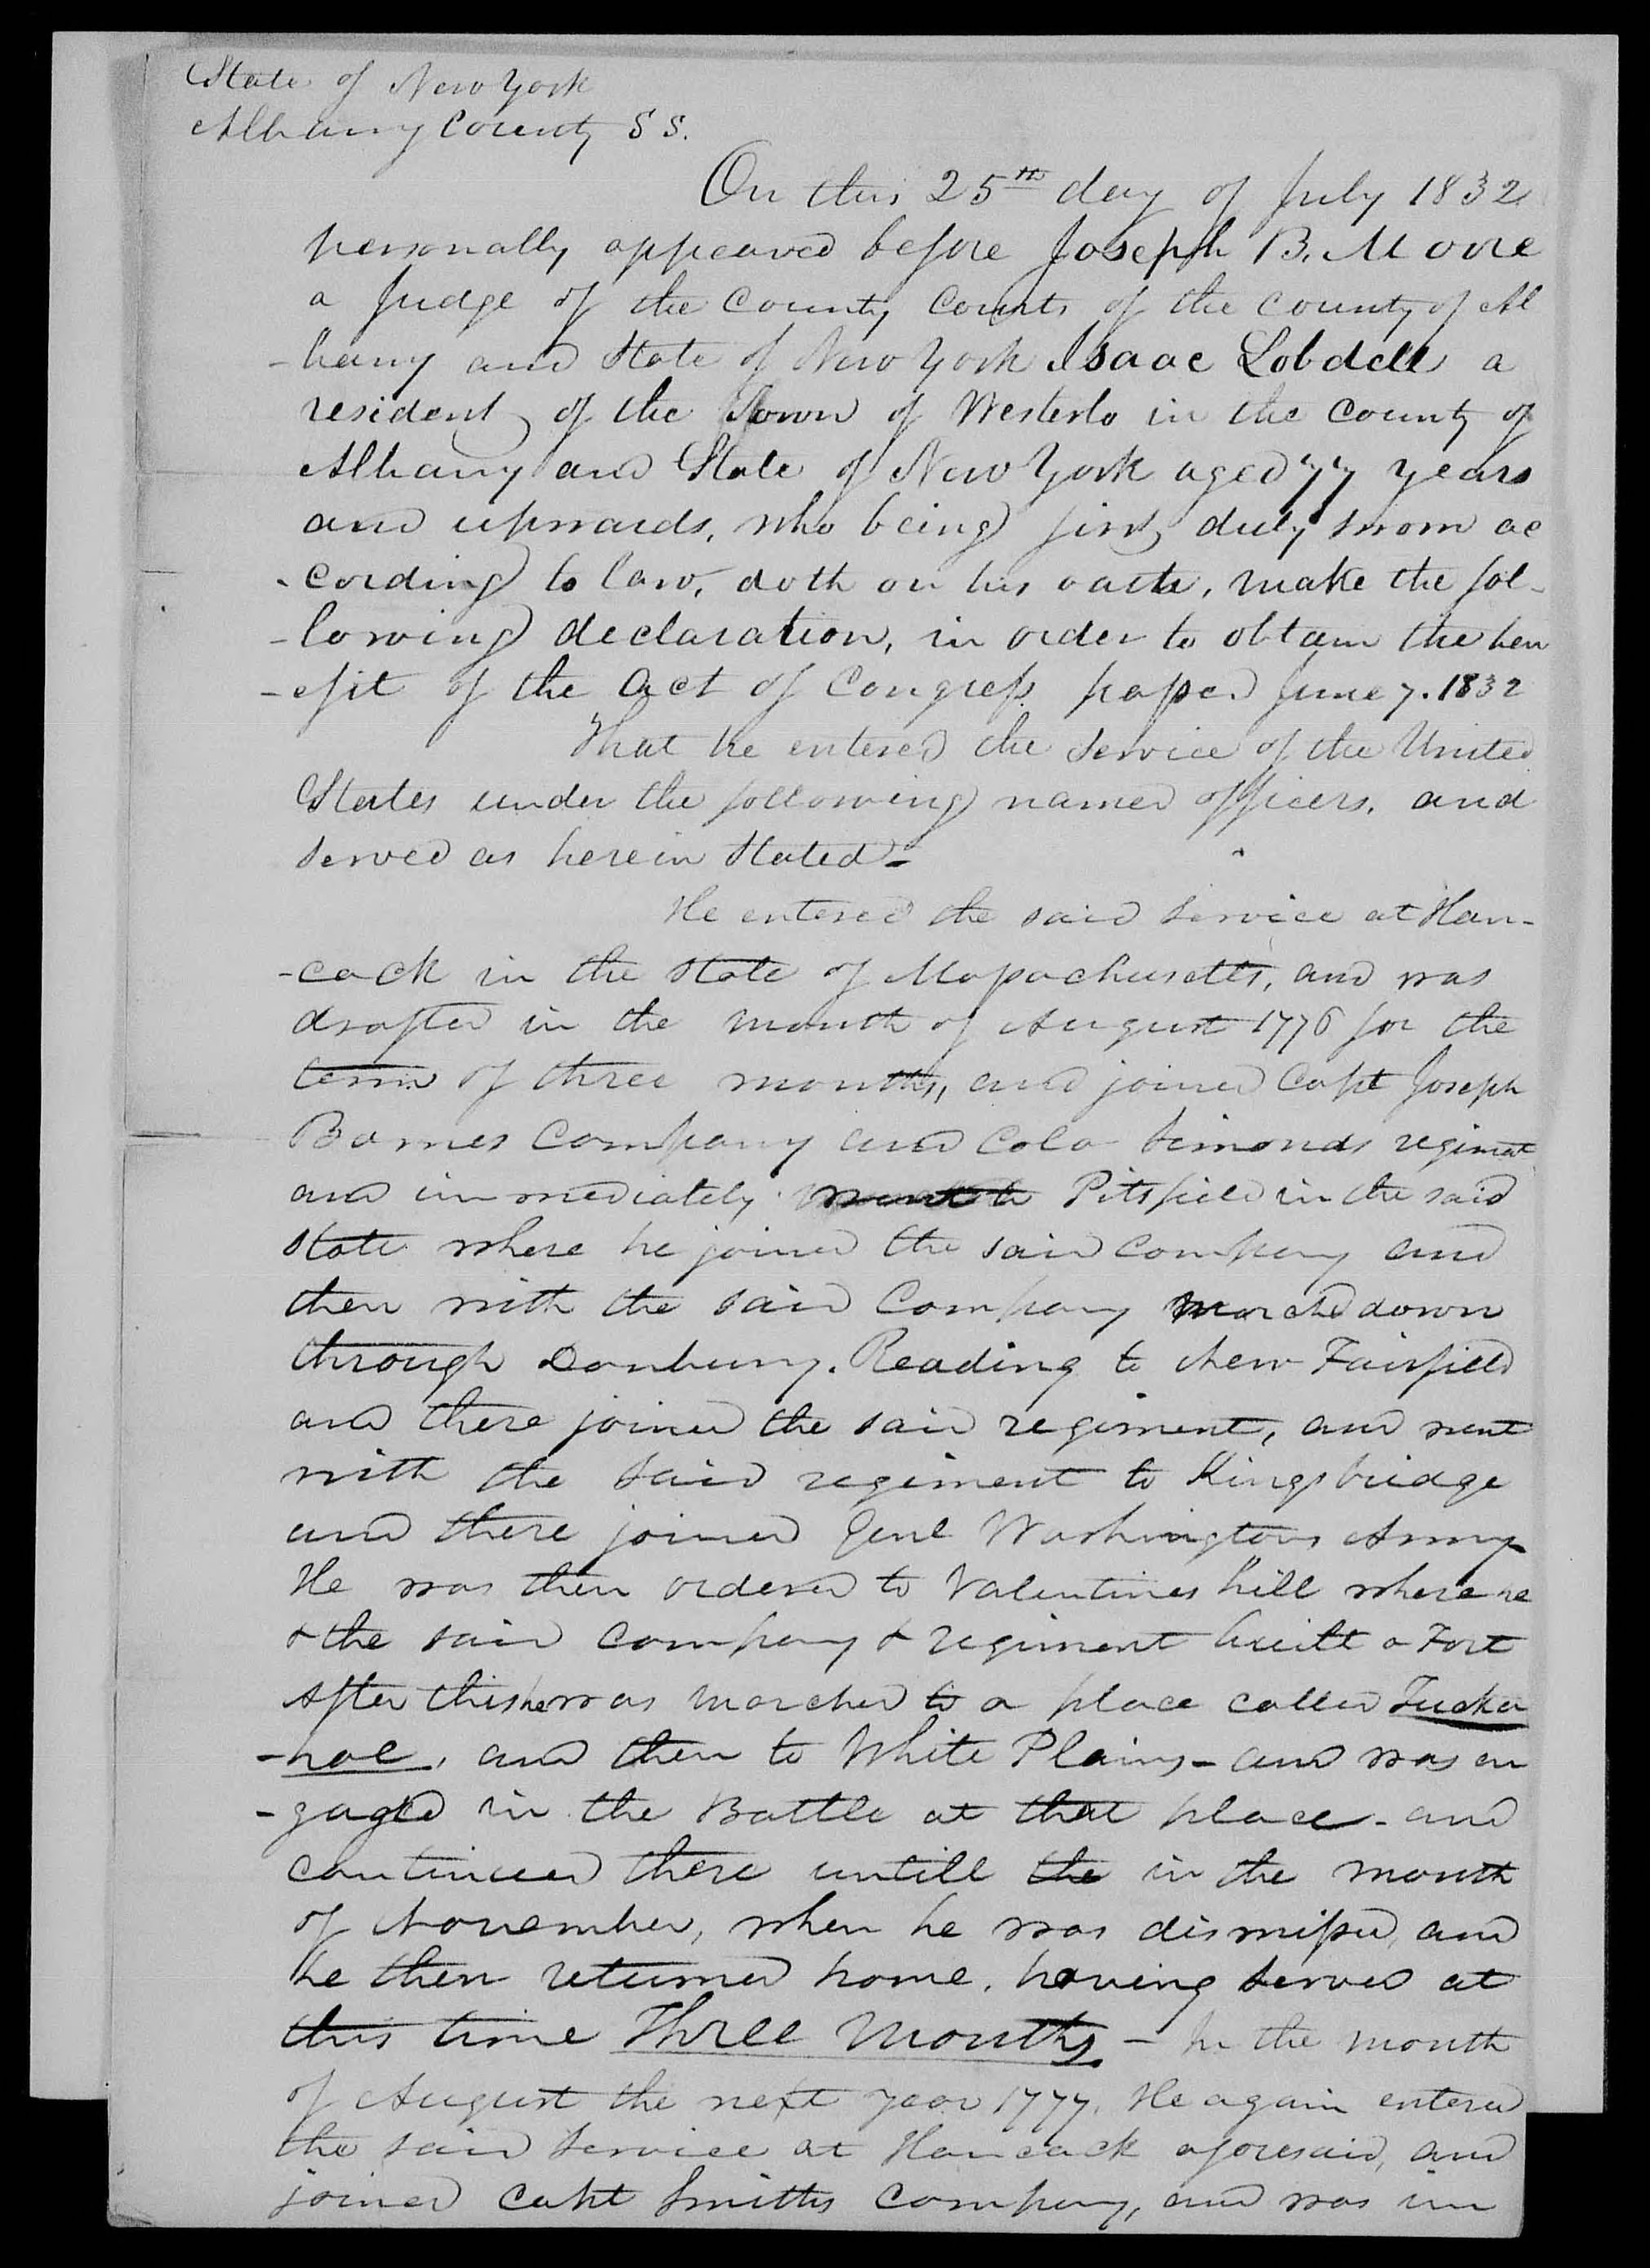 State of New York
Albany County SS.
On this 25th day of July 1832
personally appeared before Joseph B. Moore
a Judge of the County Courts of the County of Al
-bany and State of New York Isaac Lobdell a
resident of the Town of Westerlo in the County of
Albany and State of New York aged 77 years
and upwards, who being first duly sworn ac
-cording to law, doth on his oath, make the fol-
-lowing declaration, in order to obtain the ben
-efit of the Act of Congress passed June 7. 1832
That he entered the service of the United
States under the following named officers, and
served as herein stated-
He entered the said service at Han-
-cock in the State of Massachusetts, and was
drafted in the month of August 1776 for the
term of three months, and joined Capt Joseph
Barnes Company and Colo Simonds regiment
and immediately went to Pitsfield in the said
State where he joined the said company and
then with the said Company marched down
through Danbury. Reading to New Fairfield
and there joined the said regiment, and went
with the said regiment to Kingsbridge
and there joined Genl Washingtons Army
He was then ordered to Valentines hill where he
& the said company & regiment built a Fort
After this he was marched to a place called Tucka
-hoe, and then to White Plains - and was en
-gaged in the Battle at that place - and
continued there untill the in the month
of November, when he was dismissed, and
he then returned home, having served at
this time Three Months - In the month
of August the next year 1777. He again entered
the said service at Hancock aforesaid, and
joined Capt Smiths company, and was im